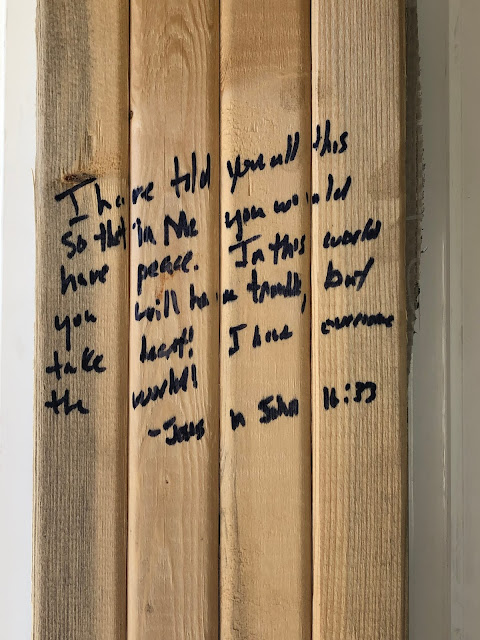 I have told you all this
so that in Me you would
have peace. In this world
you will have trouble, but
take heart! I have overcome
the world!
-Jesus in John 16:33